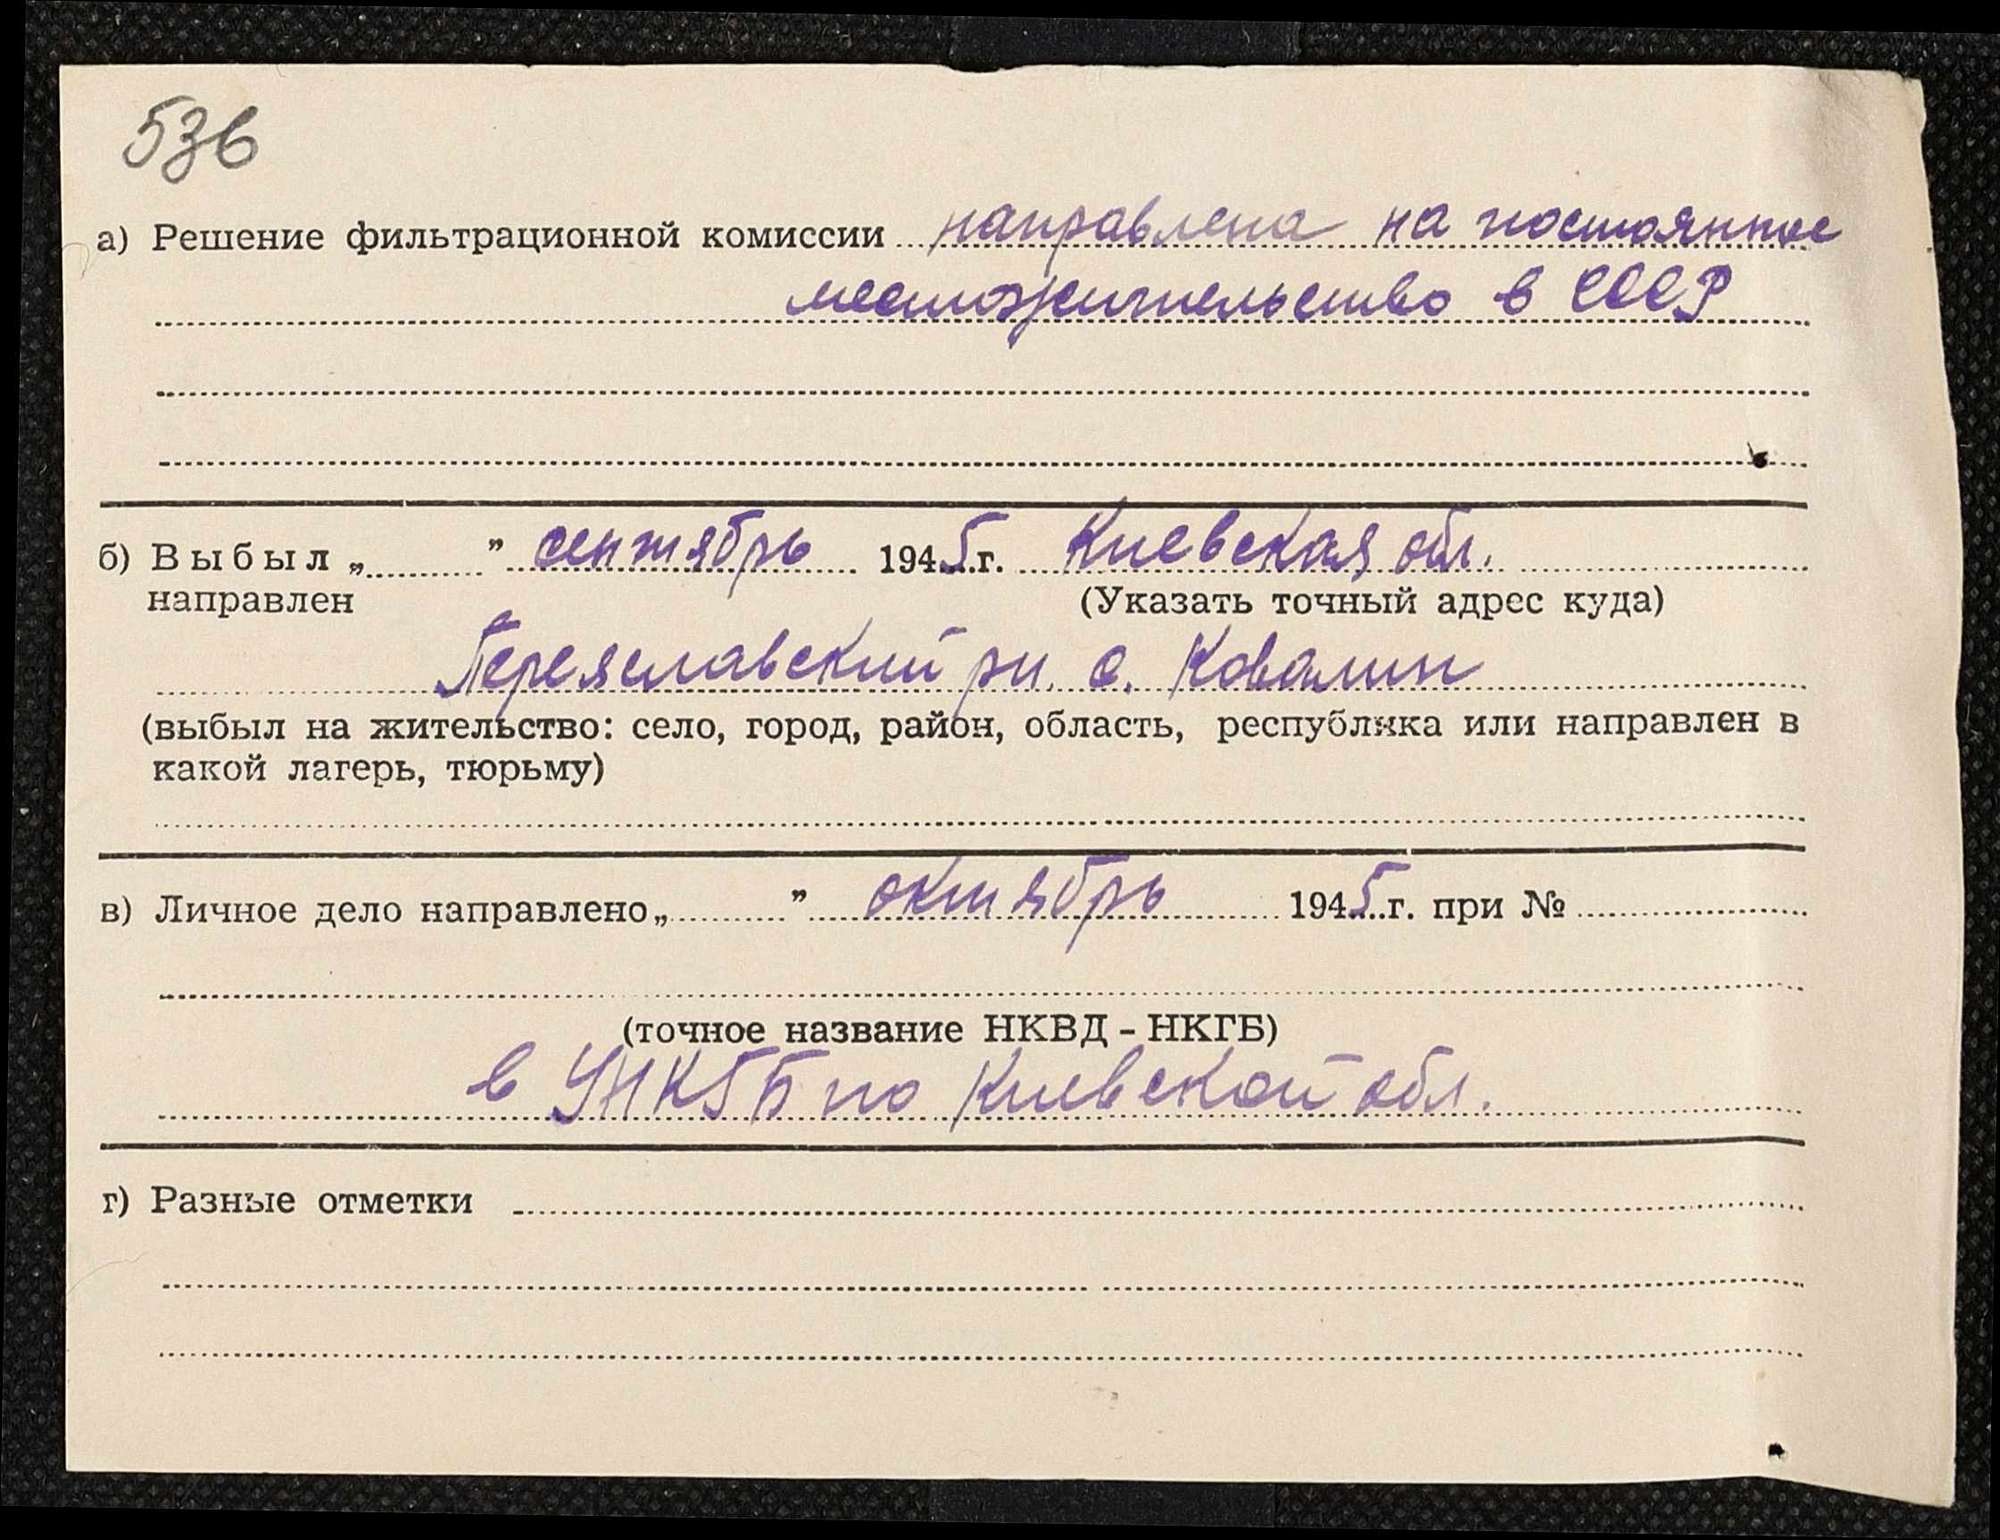 536
а) Решение фильтрационной комиссии направлена на постоянное
местожительство в СССР
б) Выбыл „ ” сентябрь 1945 г. Киевская обл.
направлен (Указать точный адрес куда)
Переяславский рн. с. Ковалин
(выбыл на жительство: село, город, район, область, республика или направлен в
какой лагерь, тюрьму)
в) Личное дело направлено „ ” октябрь 1945 г. при №
(точное название НКВД - НКГБ)
в УНКГБ по Киевской обл.
г) Разные отметки